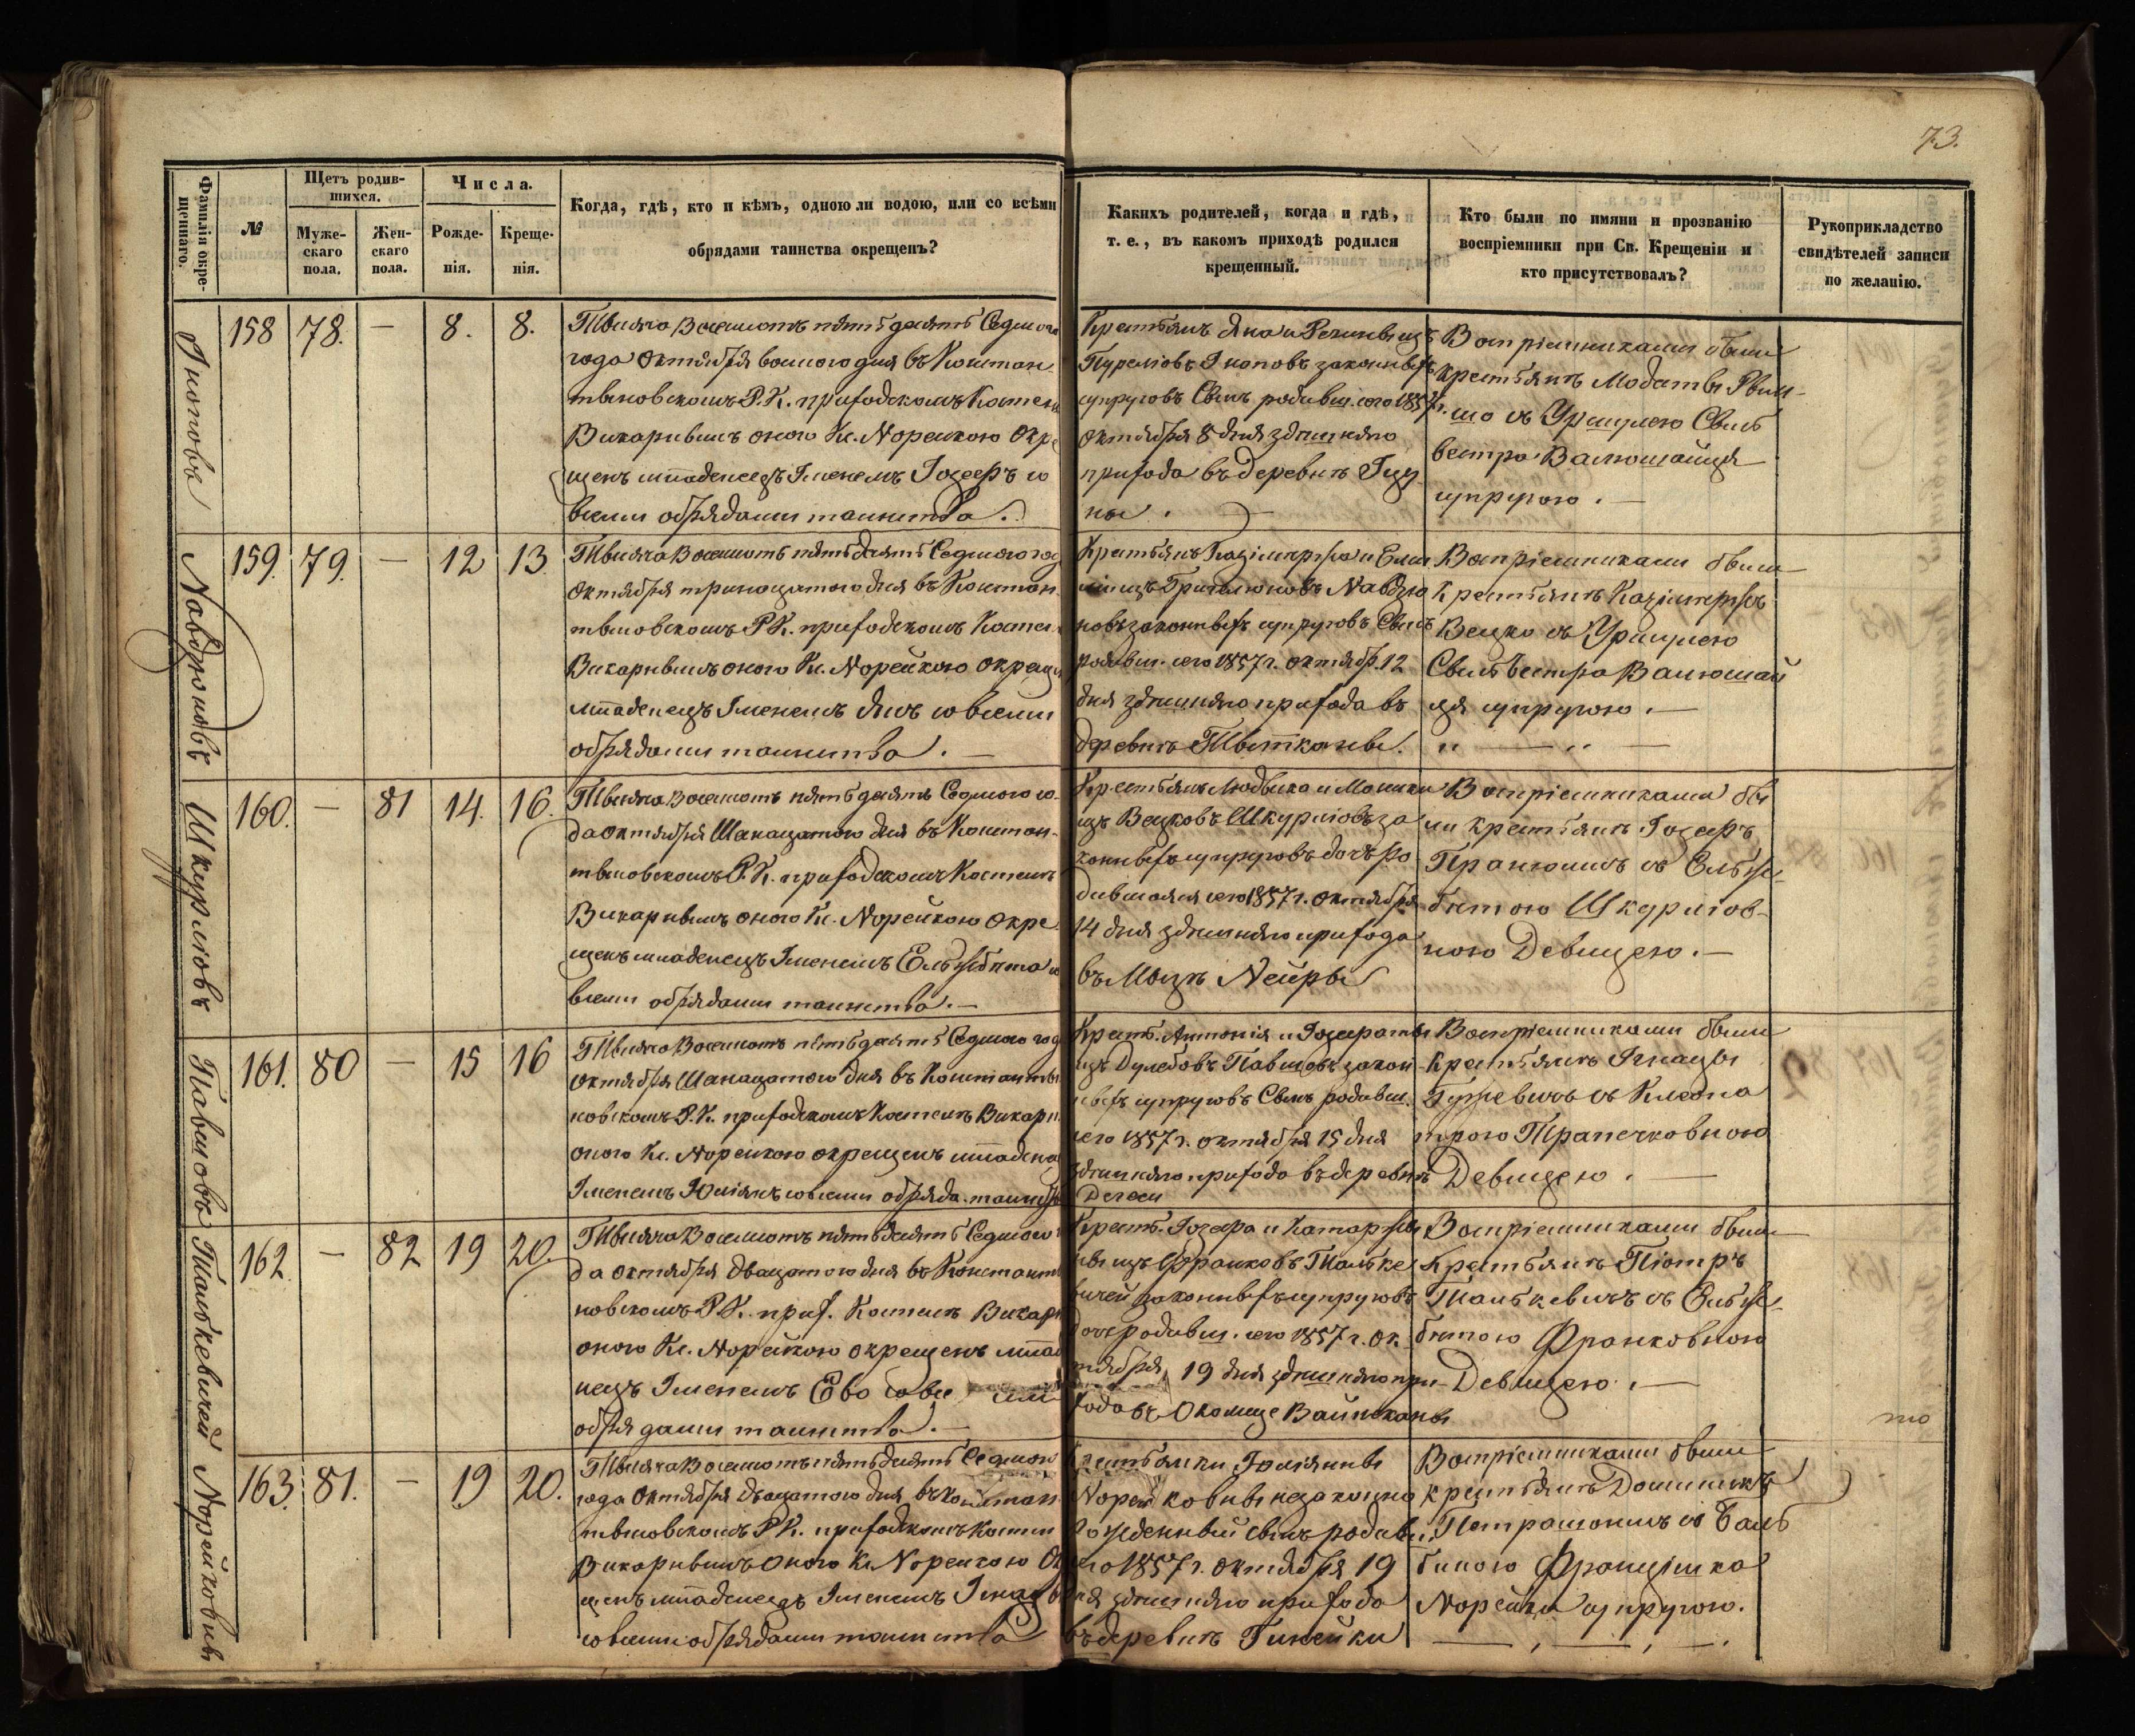 73.
Фамилія окре-
щеннаго.
№
Щетъ родив-
шихся.
Муже-
скаго
пола.
Жен-
скаго
пола.
Числа.
Рожде-
нія.
Креще-
нія.
Когда, гдѣ, кто и кѣмъ, одною ли водою, или со всѣми
обрядами таинства окрещенъ?
Какихъ родителей, когда и гдѣ,
т. е., въ какомъ приходѣ родился
крещенный.
Кто были по имяни и прозванію
воспріемники при Св. Крещеніи и
кто присутствовалъ?
Рукоприкладство
свидѣтелей записи
по желанію.
158 78. — 8. 8.
Тысяча Восемсотъ пятьдесятъ Седмого
года Октября восмого дня въ Констан
тыновскомъ Р.К. приходскомъ Костелѣ
Викарнымъ оного Кс. Норейкою Окре
щенъ младенецъ Іменемъ Іозефъ со
всеми обрядами таинства.
Крестьянъ Яна и
законныхъ
супруговъ Сынъ родивш. сего 1857 г.
Октября 8 дня здѣшняго
прихода въ деревнѣ
Воспріемниками были
крестьянъ
съ Уршулею Силь
вестра Валюшайця
супругою. —
Навдзюновъ
159. 79. — 12 13
Тысяча Восемсотъ пятьдесятъ Седмого год
Октября тринацатого дня въ Констан
тыновскомъ РК. приходскомъ Костел
Викарнымъ оного Кс. Норейкою окрещ
младенецъ Іменемъ Янъ со всеми
обрядами таинства. —
законныхъ супруговъ Сынъ
родивш. сего 1857 г. октябр. 12
дня здѣшняго прихода въ
деревнѣ
Воспріемниками были
Крестьянъ Казімержъ
Вецко съ Уршулею
Сильвестра Валюшай
ця супругою. —
Шкурлювъ
160. — 81 14. 16.
Тысяча Восемсотъ пятьдесятъ Седмого го-
да октября Шанацатого дня въ Констан-
тыновскомъ Р.К. приходскомъ Костелѣ
Викарнымъ оного Кс. Норейкою Окре
щенъ младенецъ Іменемъ Ельжбѣта со
всеми обрядами таинства. —
Крестьянъ Людвика и Моники
изъ Вецковъ Шкурлювъ за
конныхъ супруговъ дочь ро
дившаяся сего 1857 г. октября
14 дня здѣшняго прихода
въ Мызѣ Нейры
Воспріемниками бы
ли крестьянъ Іозефъ
съ Ельже-
бѣтою Шкурлюв-
ною Девицею. —
Павшовъ
161. 80 — 15 16
Тысяча Восемсотъ пятьдесятъ Седмого год
октября Шанацатого дня въ Константы
новскомъ Р.К. приходскомъ Костелѣ Викарн
оного Кс. Норейкою окрещенъ младенец
Іменемъ Юліянъ со всеми обряда. таинств
Крест. Антонія и Іозефаты
изъ Дулебовъ Павшовъ закон
ныхъ супруговъ Сынъ родивш.
сего 1857 г. октября 15 дня
здѣшняго прихода въ деревнѣ
Воспріемниками были
Крестьянъ Ігнацы
съ Клеопа
трою
Девицею. —
Талькевичей
162 — 82 19 20.
Тысяча Восемсотъ пятьдесятъ Седмого г
да октября двацатого дня въ Константы
новскомъ Р.К. прих. Костелѣ Викарн
оного Кс. Норейкою окрещенъ млад
нецъ Іменемъ Ева со всеми
обрядами таинства. —
Крест. Іозефа и Катаржи
ны изъ Франковъ Тальке
вичей законныхъ супруговъ
дочь родивш. сего 1857 г. ок.
тября 19 дня здѣшняго при-
хода въ Околице
Воспріемниками были
Крестьянъ Піотръ
Талькевичъ съ Ельже-
бѣтою Франковною
Девицею. —
Норейковны
163. 81. — 19 20.
Тысяча Восемсотъ пятьдесятъ Седмого
года Октября двацатого дня въ Констан
тыновскомъ РК. приходскомъ Костел
Викарнымъ оного Кс Норейкою Ок
щенъ младенецъ Іменемъ Ігнацы
со всеми обрядами таинства
Крестьянки Юліянны
Норейковны незаконно
рожденный сынъ родивш.
сего 1857 г. октября 19
дня здѣшняго прихода
въ деревнѣ Гинейки
Воспріемниками были
крестьянъ Доминикъ
съ Баль
биною Францішка
Норейки супругою.